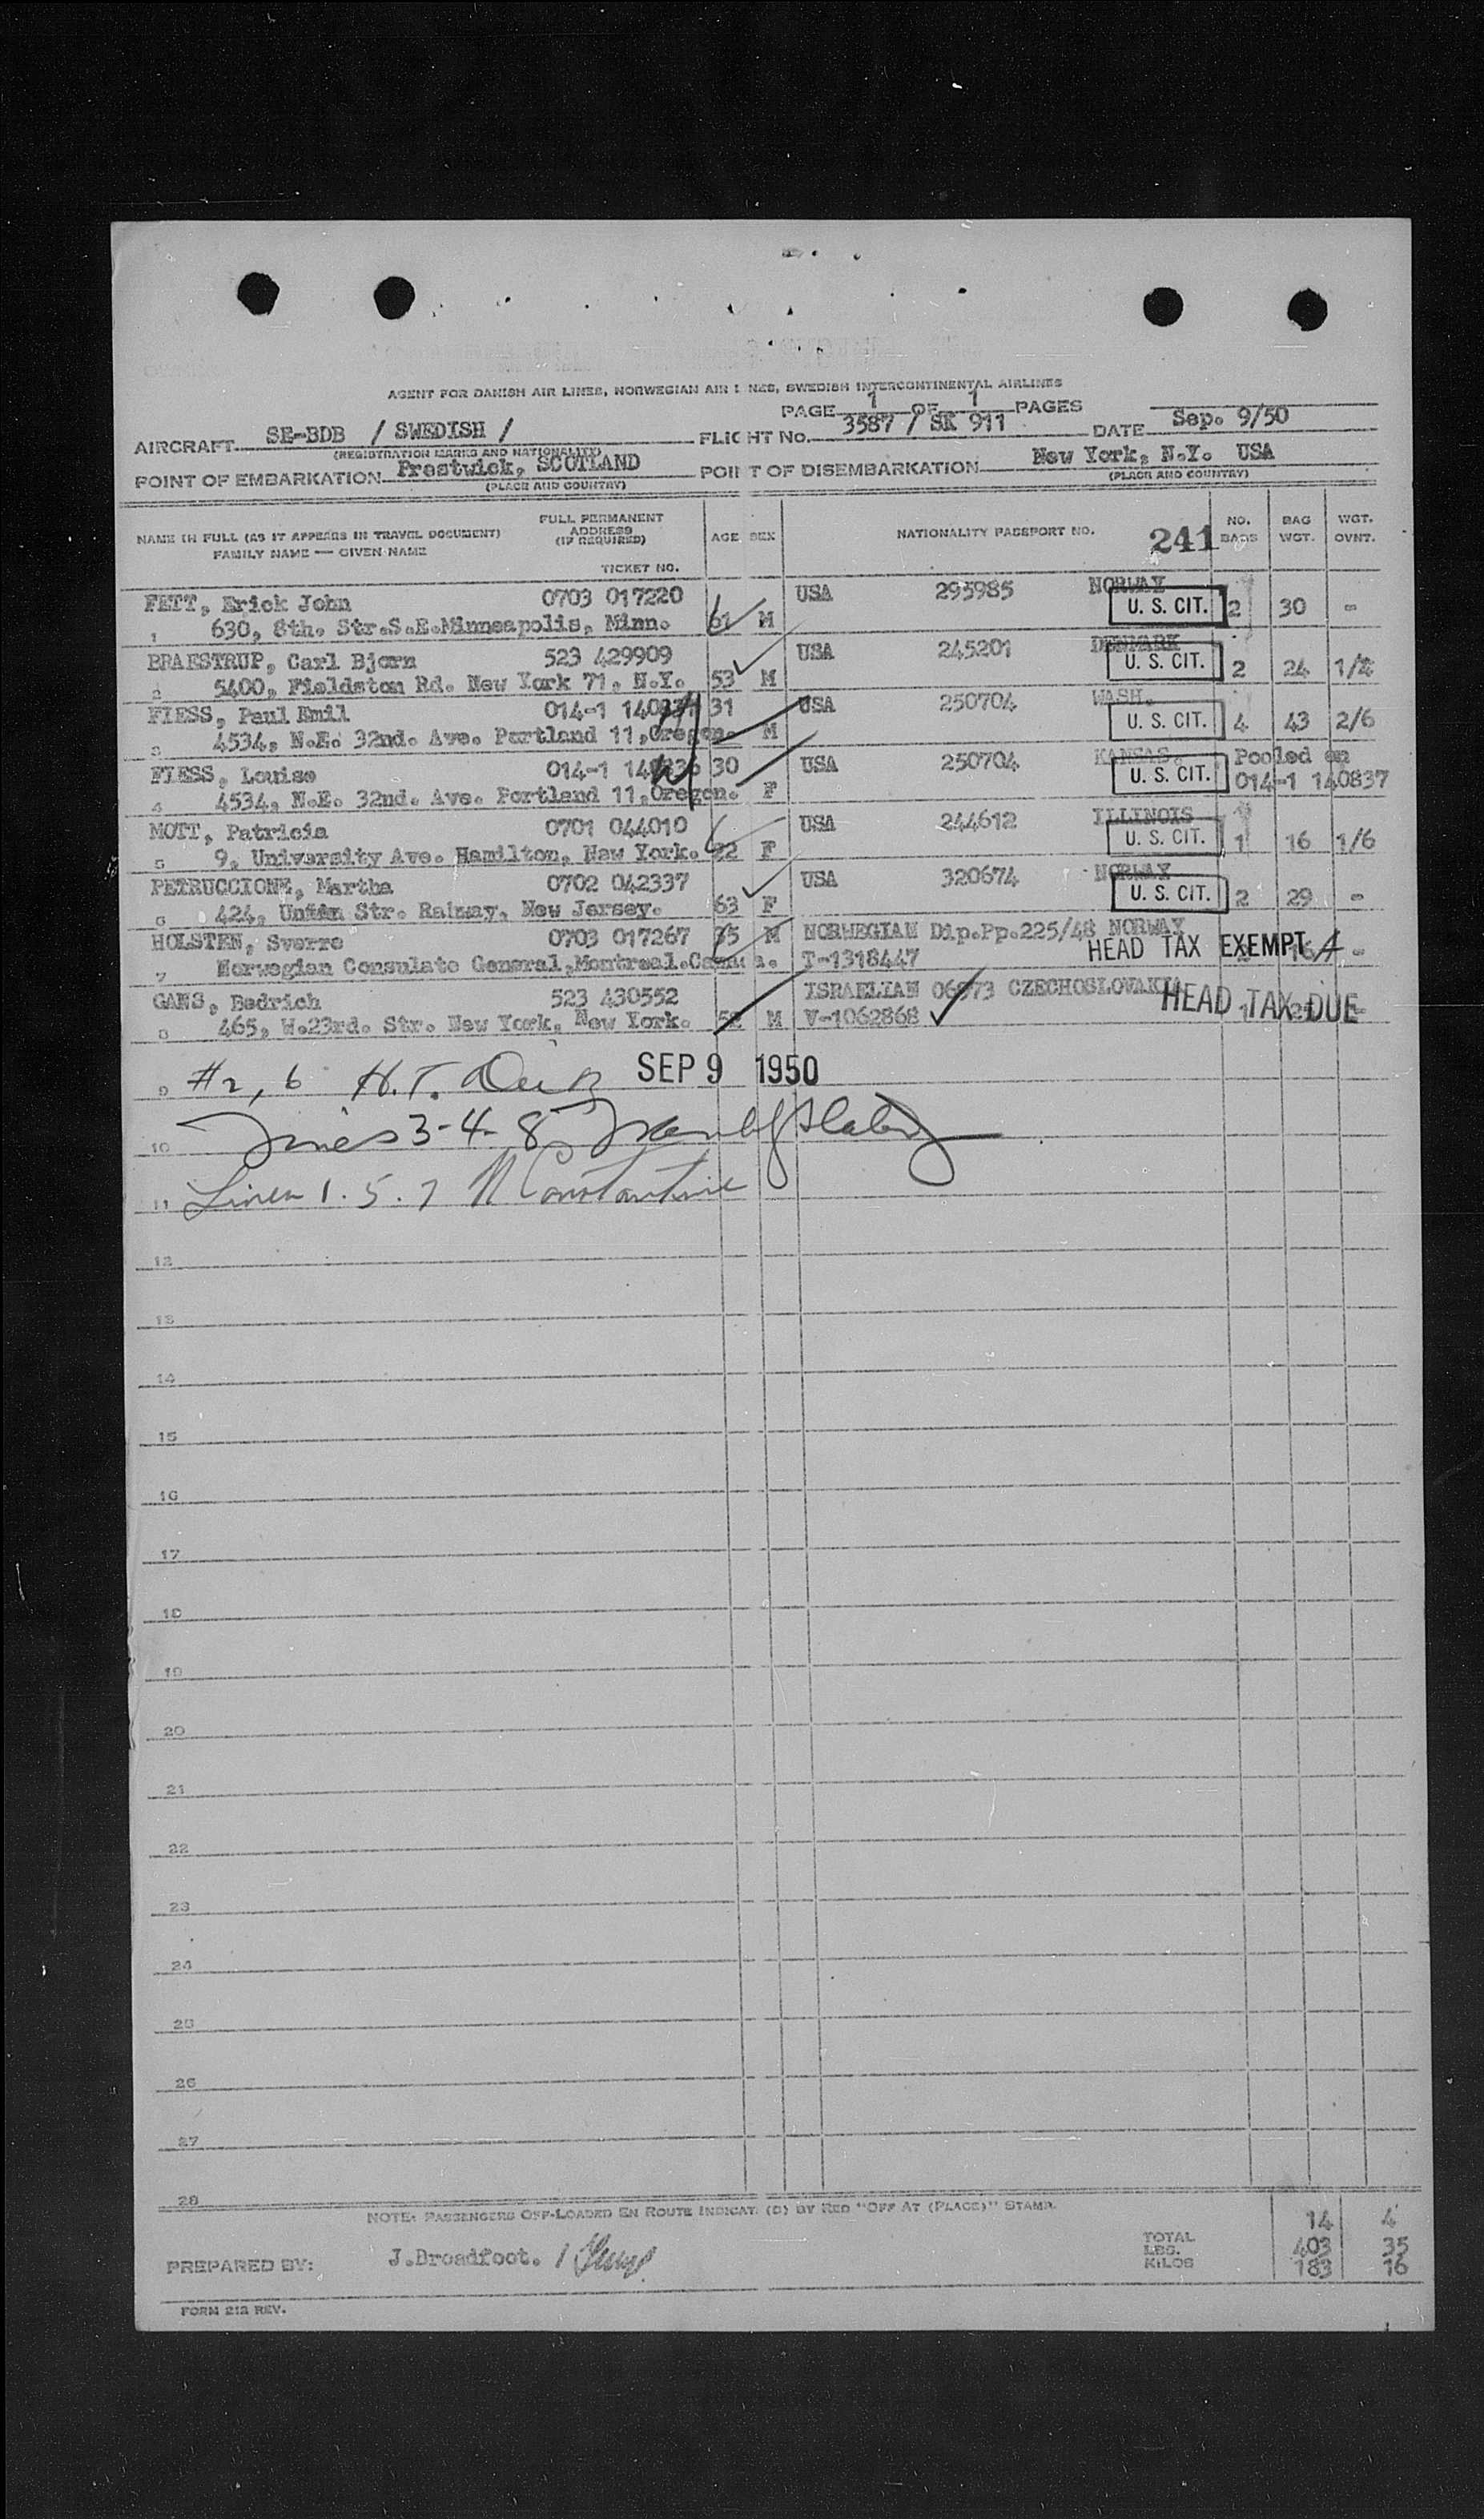 AGENT FOR DANISH AIR LINES, NORWEGIAN AIR LINES, SWEDISH INTERCONTINENTAL AIRLINES
PAGE 1 OF 1 PAGES
AIRCRAFT SE-BDB / SWEDISH / FLIGHT No. 3587 / SK 911 DATE Sep. 9/50
(REGISTRATION MARKS AND NATIONALITY)
POINT OF EMBARKATION Prestwick, SCOTLAND POINT OF DISEMBARKATION New York, N.Y. USA
(PLACE AND COUNTRY) (PLACE AND COUNTRY)
NAME IN FULL (AS IT APPEARS IN TRAVEL DOCUMENT) FAMILY NAME — GIVEN NAME FULL PERMANENT ADDRESS (IF REQUIRED) TICKET NO. AGE SEX NATIONALITY PASSPORT NO. 241 NO. BAGS BAG WGT. WGT. OVNT.
FETT, Erick John 0703 017220 USA 295985 NORWAY
1 630, 8th. Str.S.E.Minneapolis, Minn. 61 M U. S. CIT. 2 30 -
BRAESTRUP, Carl Bjorn 523 429909 USA 245201 DENMARK
2 5400, Fieldston Rd. New York 71. N.Y. 53 M U. S. CIT. 2 24 1/2
FIESS, Paul Emil 014-1 140837 31 USA 250704 WASH.
3 4534, N.E. 32nd. Ave. Portland 11,Oregon. M U. S. CIT. 4 43 2/6
FIESS, Louise 014-1 140836 30 USA 250704 KANSAS. Pooled on
4 4534, N.E. 32nd. Ave. Portland 11,Oregon. F U. S. CIT. 014-1 140837
MOTT, Patricia 0701 044010 USA 244612 ILLINOIS
5 9, University Ave. Hamilton, New York. 22 F U. S. CIT. 1 16 1/6
PETRUCCIONE, Martha 0702 042337 USA 320674 NORWAY
6 424, Union Str. Rahway, New Jersey. 63 F U. S. CIT. 2 29 -
HOLSTEN, Sverre 0703 017267 35 M NORWEGIAN Dip.Pp.225/48 NORWAY
7 Norwegian Consulate General,Montreal.Canada. T-1318447 HEAD TAX EXEMPT 16 -
GANS, Bedrich 523 430552 ISRAELIAN 06973 CZECHOSLOVAKIA
8 465, W.23rd. Str. New York, New York. 52 M V-1062868 HEAD TAX DUE
9 #2, 6 H.T. SEP 9 1950
10 3-4-8
11 Lines 1. 5. 7 N Constantine
12
13
14
15
16
17
18
19
20
21
22
23
24
25
26
27
28
NOTE: PASSENGERS OFF-LOADED EN ROUTE INDICATED BY RED "OFF AT (PLACE)" STAMP.
14 4
TOTAL LBS. 403 35
PREPARED BY: J.Broadfoot. / KILOS 183 16
FORM 212 REV.